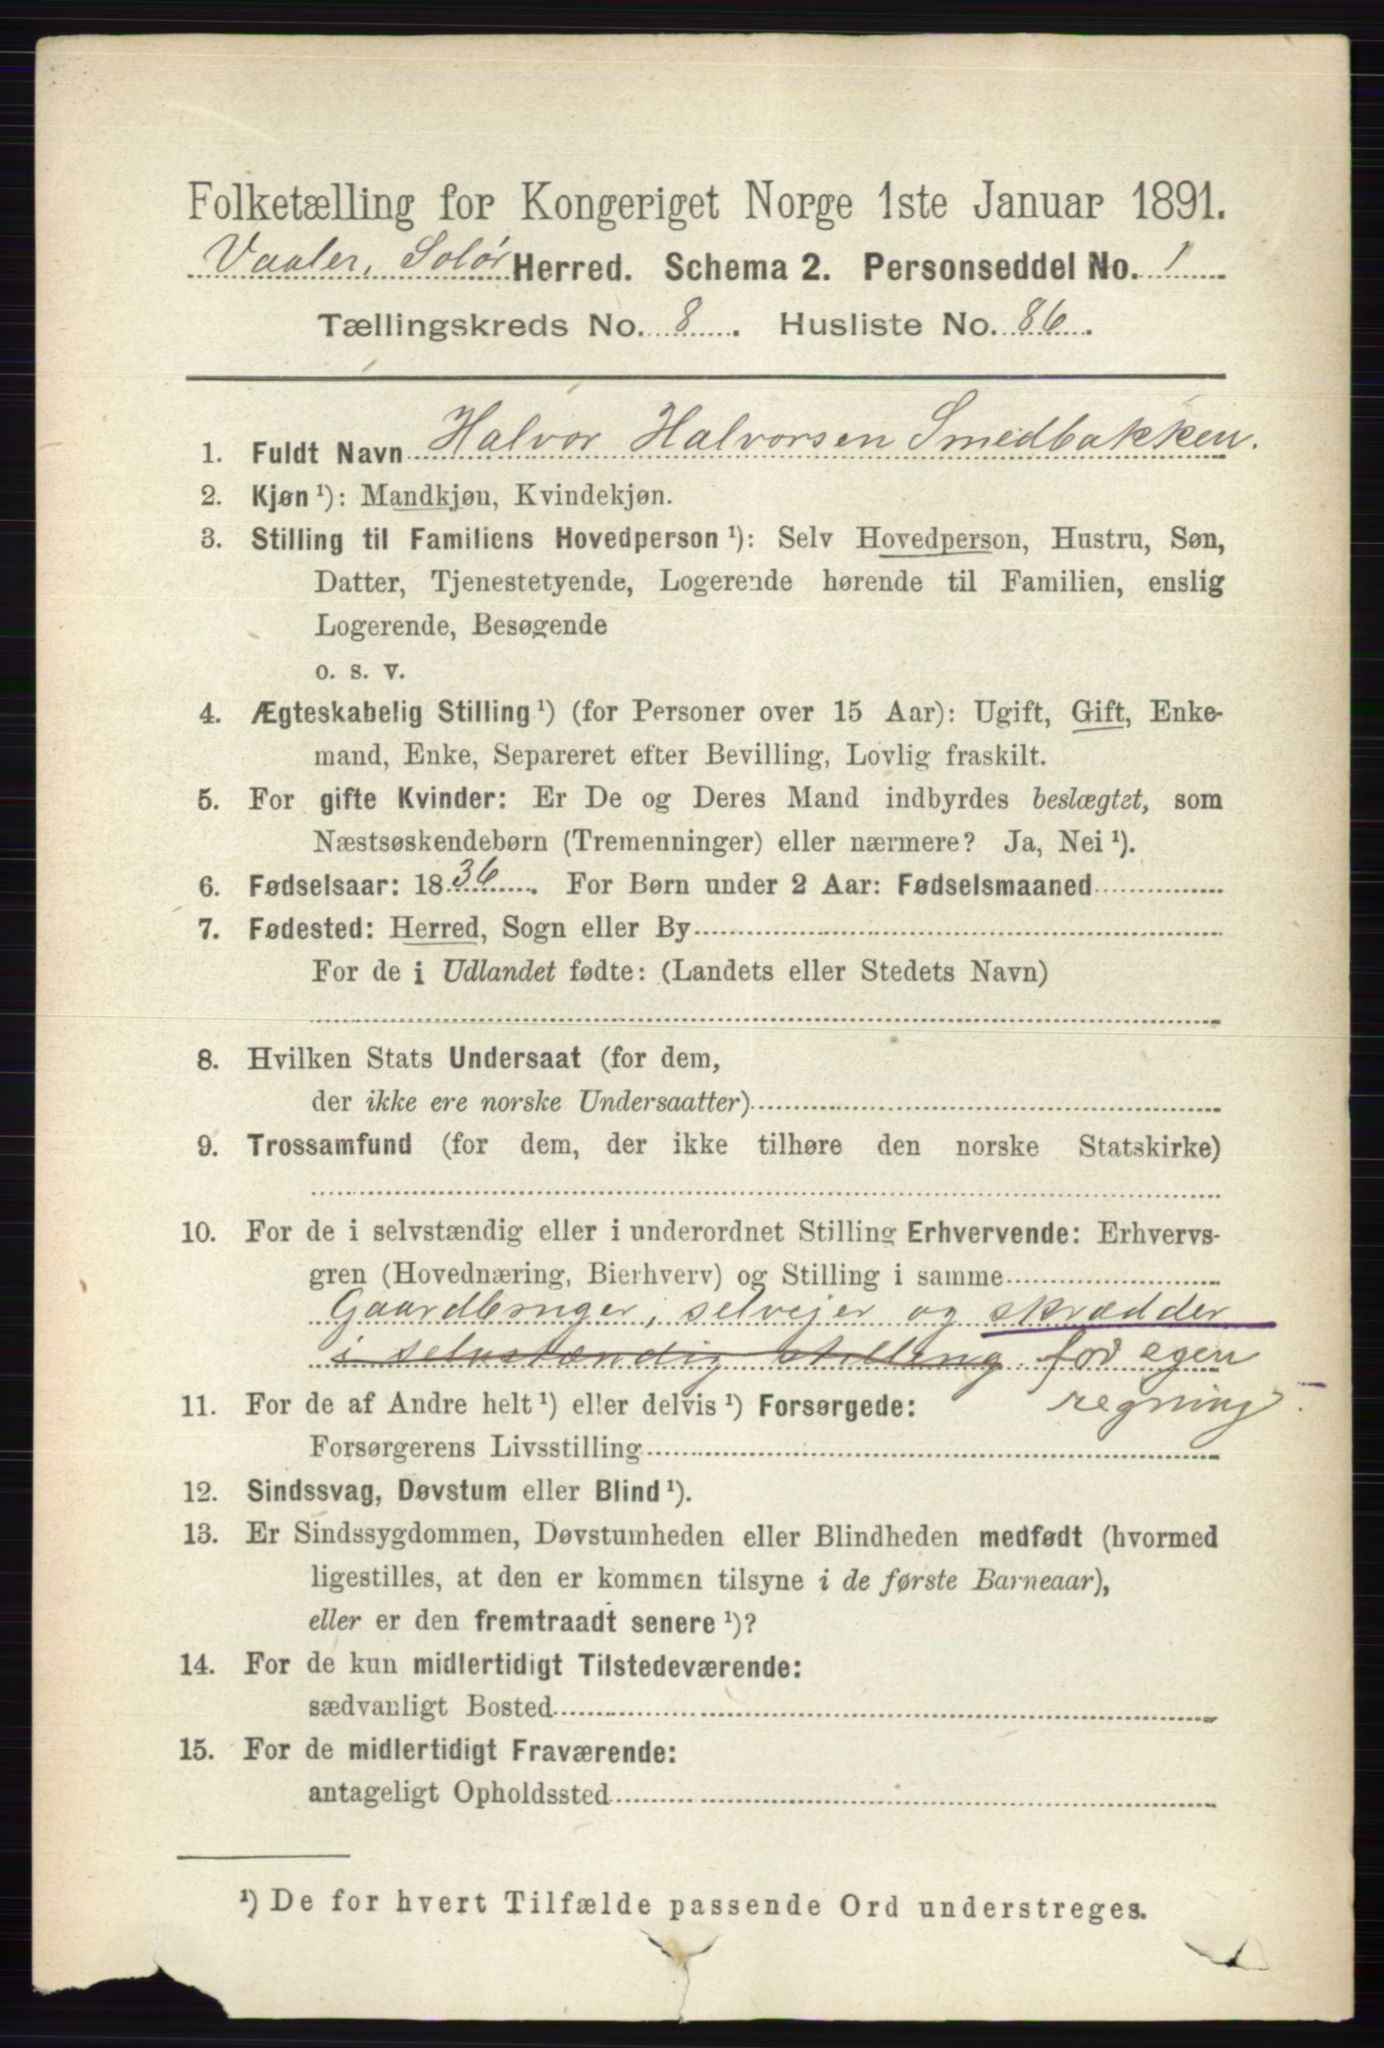 Folketælling for Kongeriget Norge 1ste Januar 1891.
Vaaler, Solør Herred. Schema 2. Personseddel No. 1
Tællingskreds No. 8. Husliste No. 86.
1. Fuldt Navn Halvor Halvorsen Smedbakken.
2. Kjøn ¹): Mandkjøn, Kvindekjøn.
3. Stilling til Familiens Hovedperson ¹): Selv Hovedperson, Hustru, Søn,
Datter, Tjenestetyende, Logerende hørende til Familien, enslig
Logerende, Besøgende
o. s. v.
4. Ægteskabelig Stilling ¹) (for Personer over 15 Aar): Ugift, Gift, Enke-
mand, Enke, Separeret efter Bevilling, Lovlig fraskilt.
5. For gifte Kvinder: Er De og Deres Mand indbyrdes beslægtet, som
Næstsøskendebørn (Tremenninger) eller nærmere? Ja, Nei ¹).
6. Fødselsaar: 1836. For Børn under 2 Aar: Fødselsmaaned
7. Fødested: Herred, Sogn eller By
For de i Udlandet fødte: (Landets eller Stedets Navn)
8. Hvilken Stats Undersaat (for dem,
der ikke ere norske Undersaatter)
9. Trossamfund (for dem, der ikke tilhøre den norske Statskirke)
10. For de i selvstændig eller i underordnet Stilling Erhvervende: Erhvervs-
gren (Hovednæring, Bierhverv) og Stilling i samme
Gaardbruger, selvejer og skrædder
i selvstændig stilling for egen
regning.
11. For de af Andre helt ¹) eller delvis ¹) Forsørgede:
Forsørgerens Livsstilling
12. Sindssvag, Døvstum eller Blind ¹).
13. Er Sindssygdommen, Døvstumheden eller Blindheden medfødt (hvormed
ligestilles, at den er kommen tilsyne i de første Barneaar),
eller er den fremtraadt senere ¹)?
14. For de kun midlertidigt Tilstedeværende:
sædvanligt Bosted
15. For de midlertidigt Fraværende:
antageligt Opholdssted
¹) De for hvert Tilfælde passende Ord understreges.